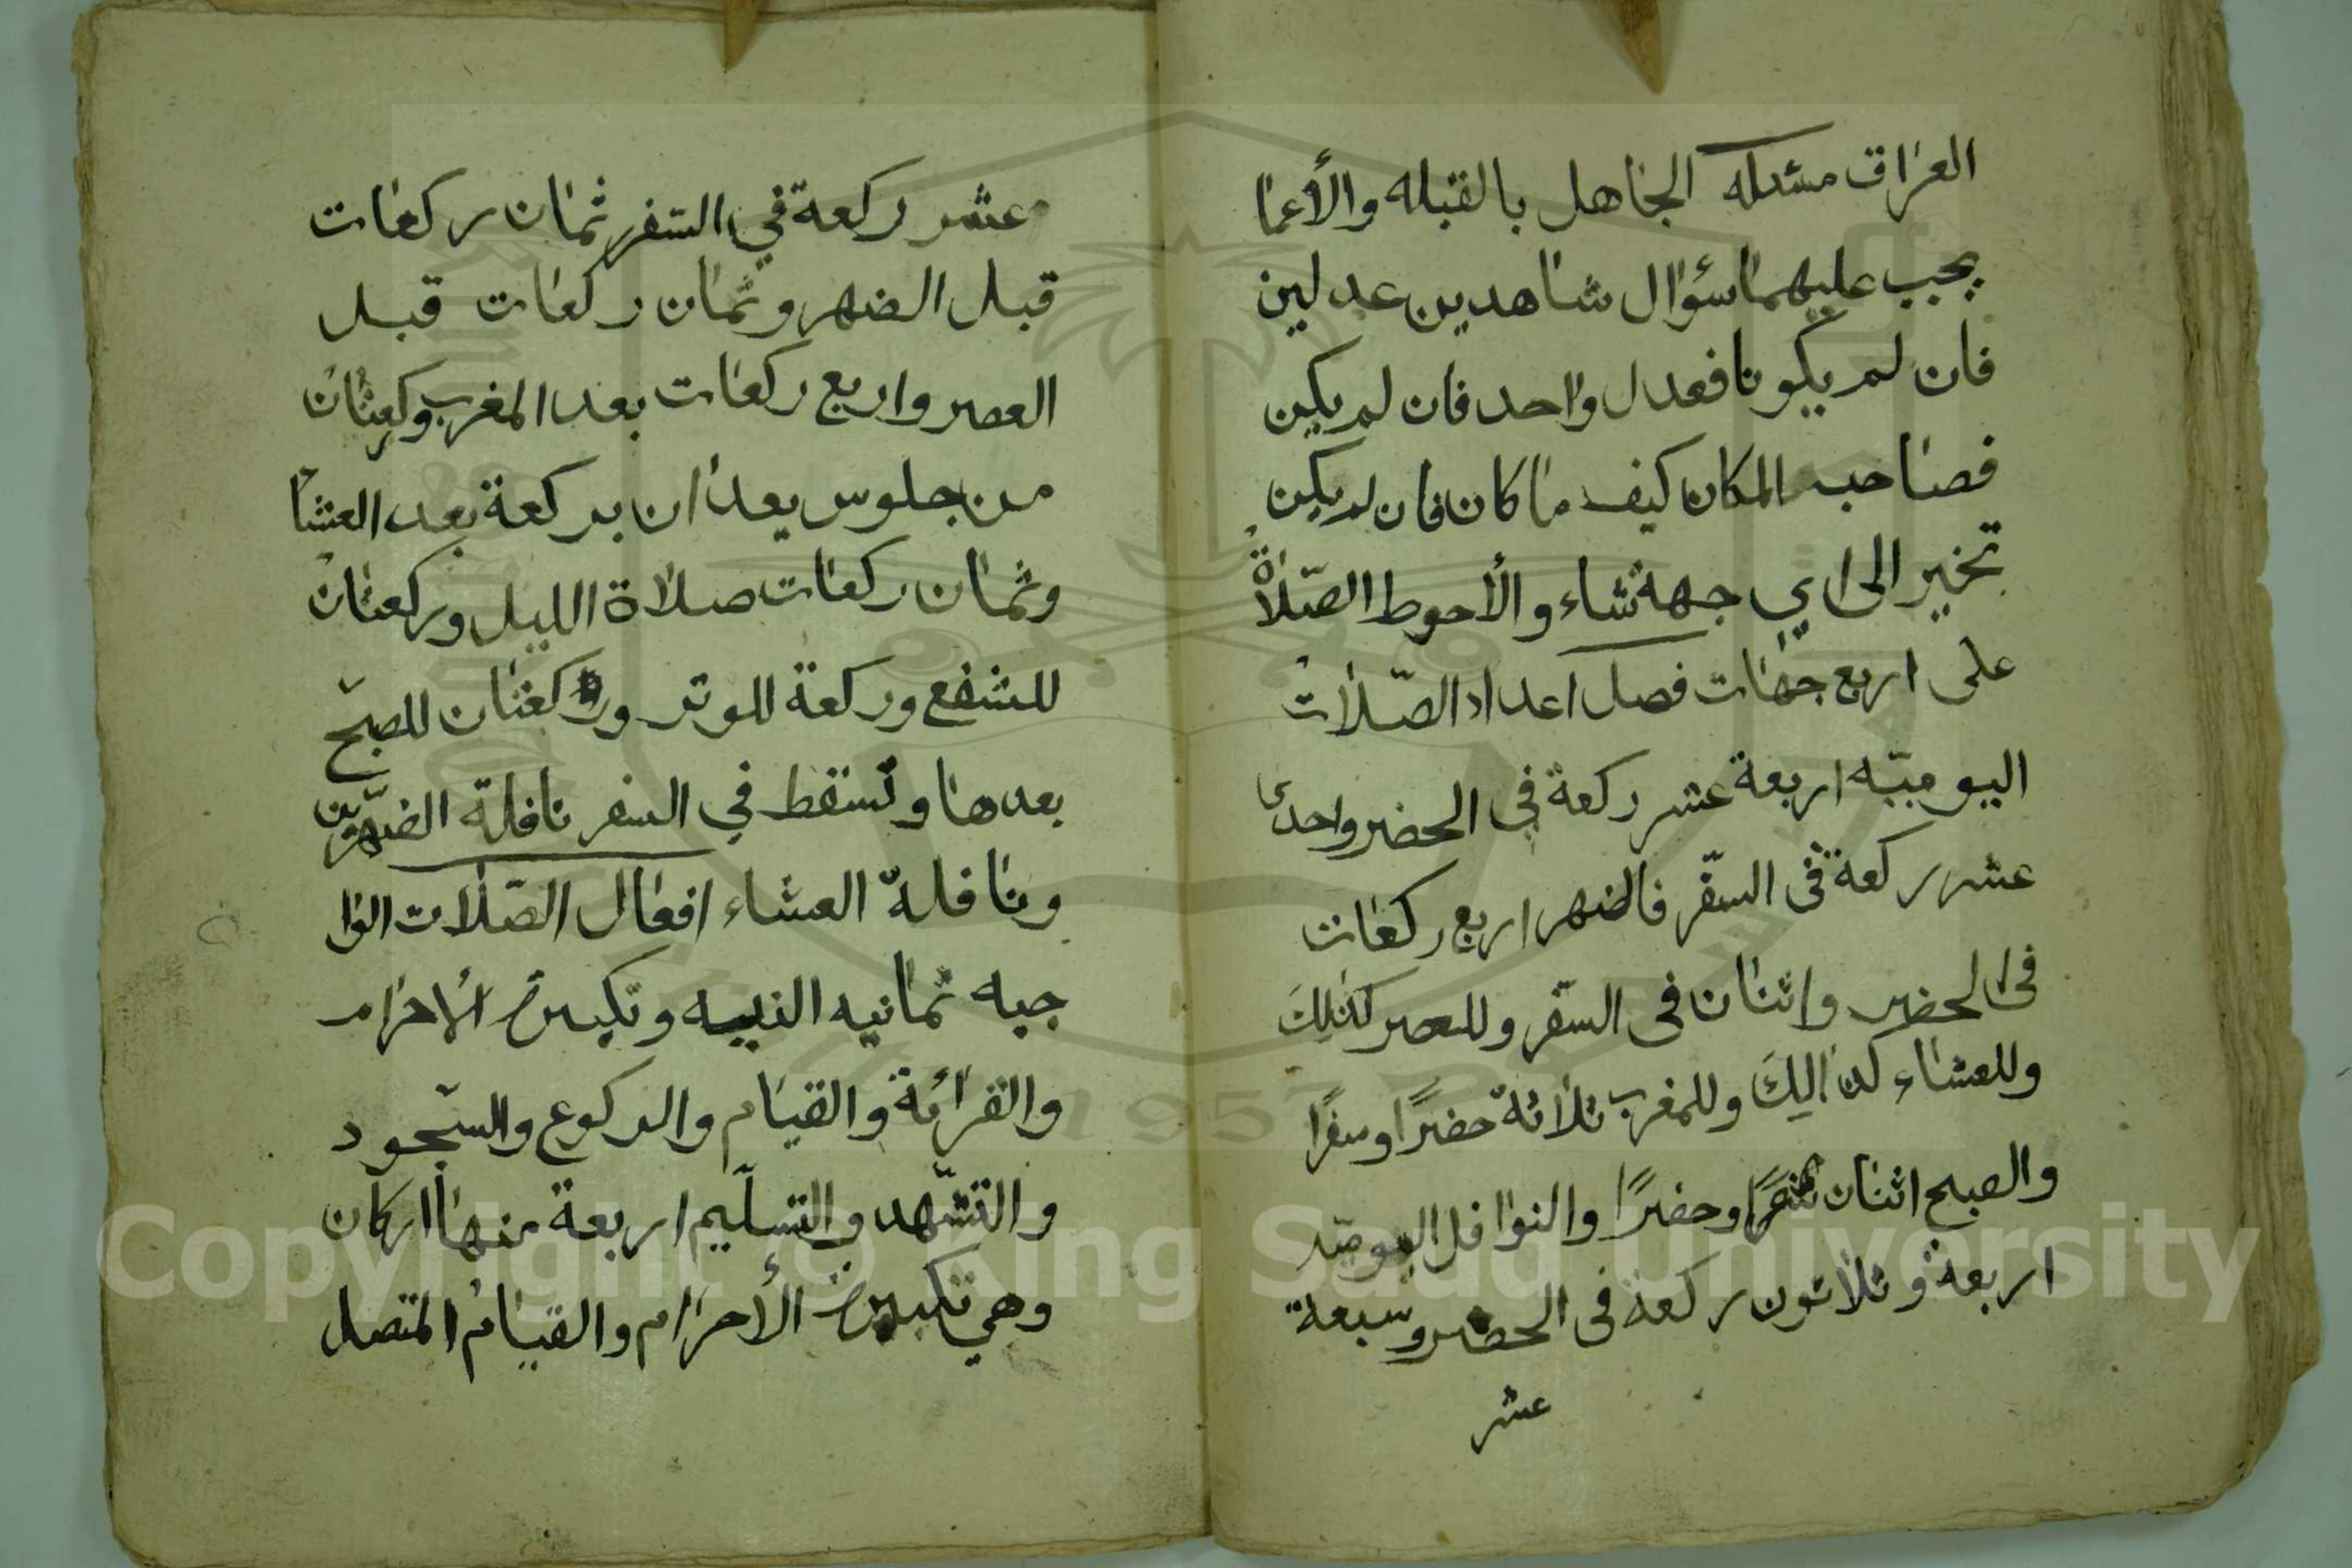 العراق مسئله الجاهل بالقبله والأعما
يجب عليهما سؤال شاهدين عدلين
فان لم يكونا فعدل واحد فان لم يكن
فصاحب المكان كيف ما كان فان لم يكن
تخير الى اي جهة شاء والأحوط الصّلاة
على اربع جهات فصل اعداد الصّلات
اليوميّه اربعة عشر ركعة في الحضر واحدى
عشر ركعة في السفر فالضهر اربع ركعات
في الحضر واثنان في السفر وللعصر كذلك
وللعشاء كذالك وللمغرب ثلاثة حضرًا وسفرًا
والصبح اثنان وحضرًا والنوافل اليوميّه
اربعة وثلاثون ركعة في الحضر وسبعة
عشر
عشر ركعة في السفر ثمان ركعات
قبل الضهر وثمان ركعات قبل
العصر واربع ركعات بعد المغرب وركعتان
من جلوس يعدان بركعة بعد العشا
وثمان ركعات صلاة الليل وركعتان
للشفع وركعة للوتر وركعتان للصبح
بعدها وتسقط في السفر نافلة الضهرين
ونافلة العشاء افعال الصّلات الوا
جبه ثمانيه النيه وتكبيرة الاحرام
والقرائة والقيام والركوع والسّجود
والتشّهد والتسلّيم اربعة منها اركان
وهي تكبيرة الأحرام والقيام المتصل
Copyright © King Saud University
1957